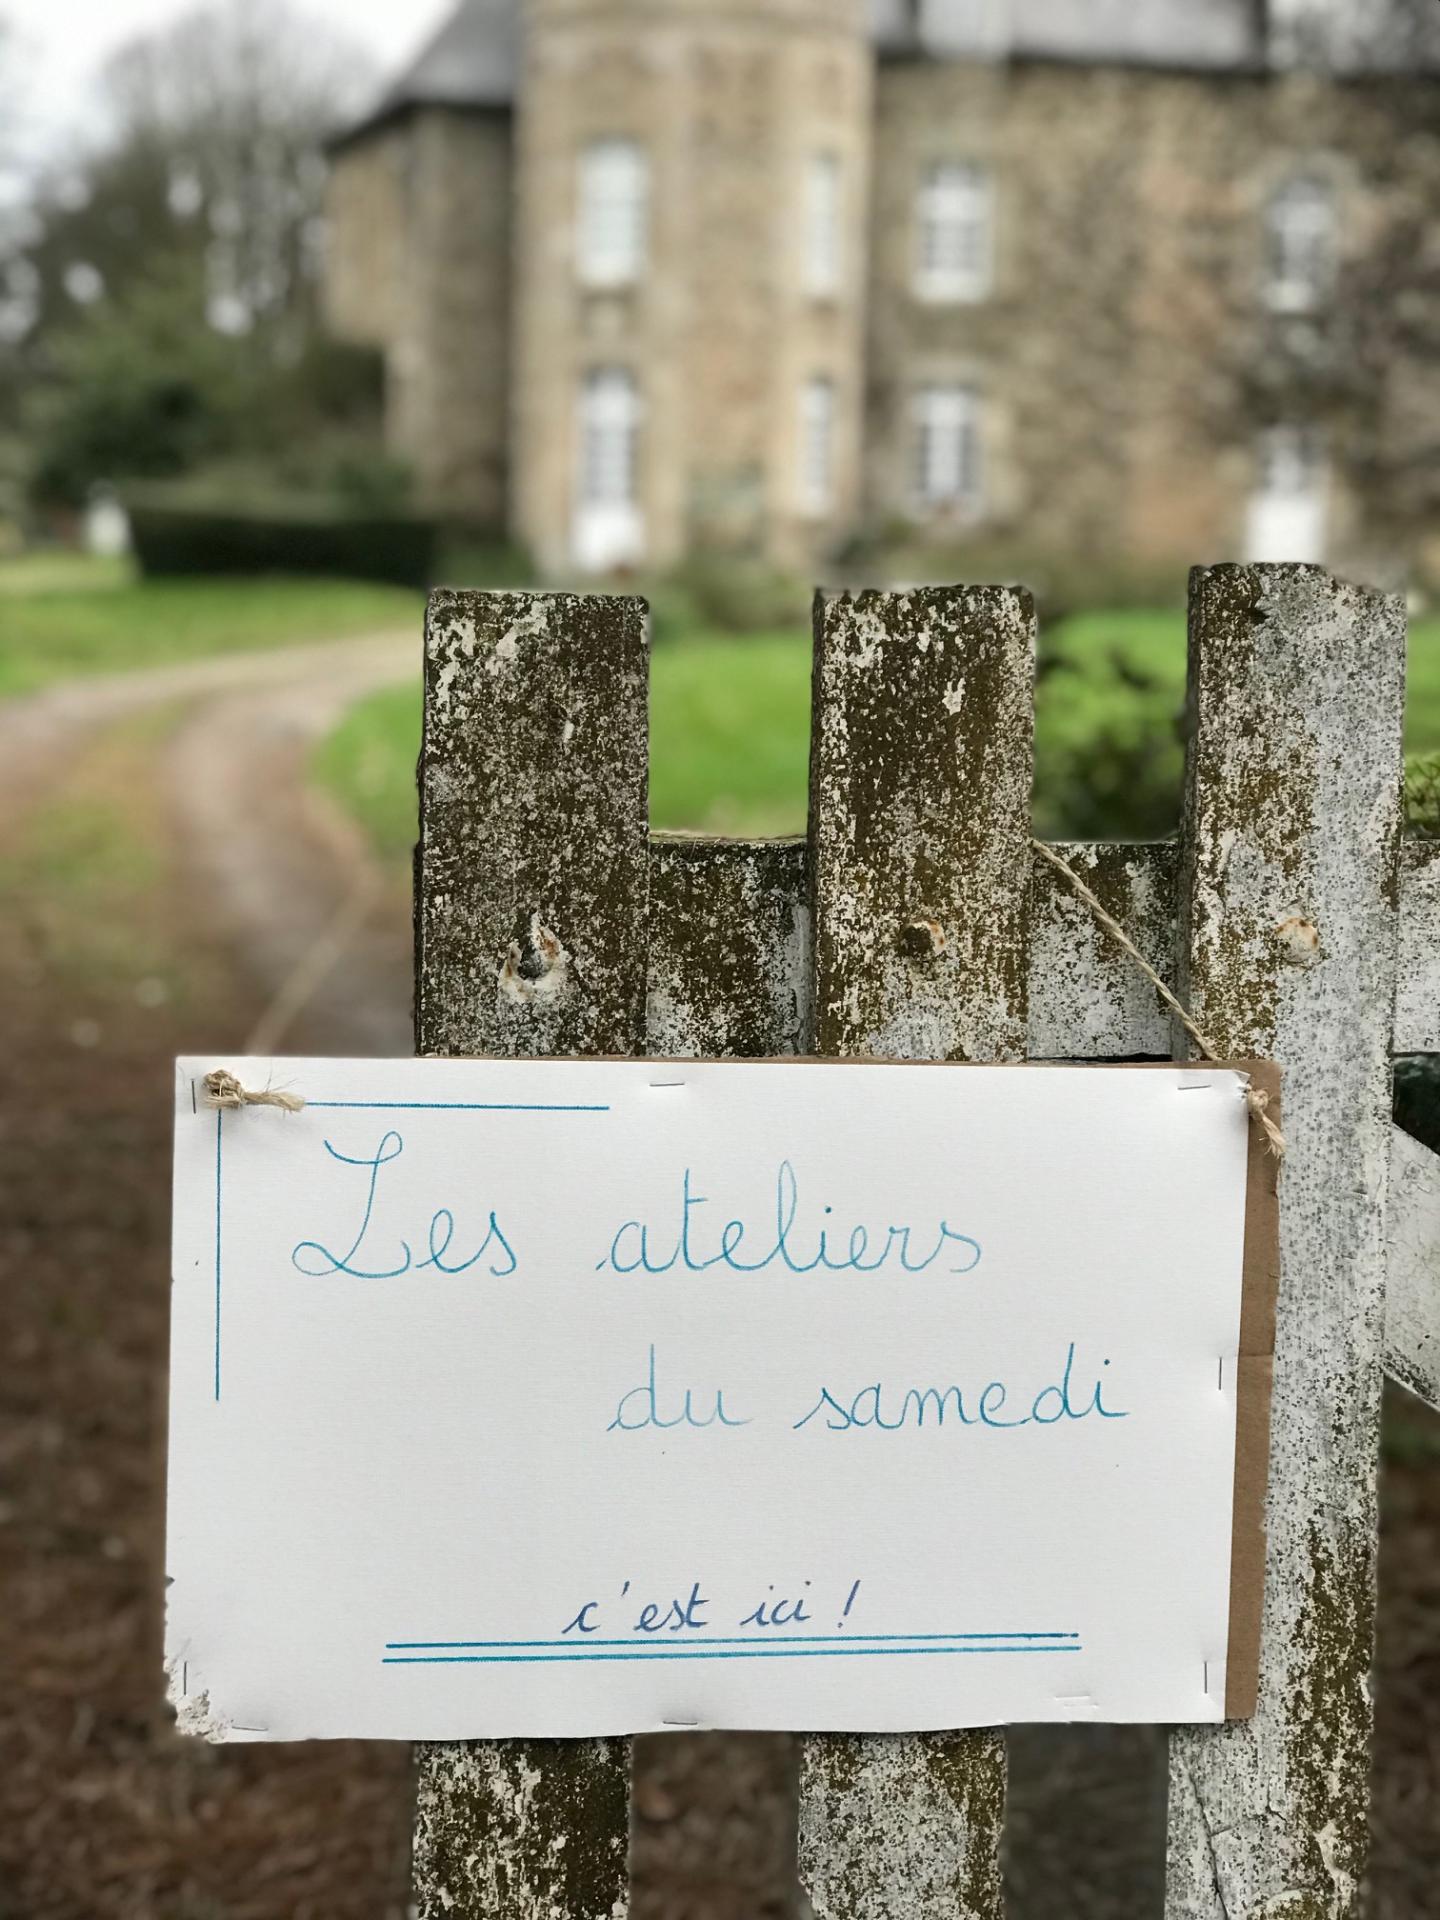 Les ateliers
du samedi
c'est ici !